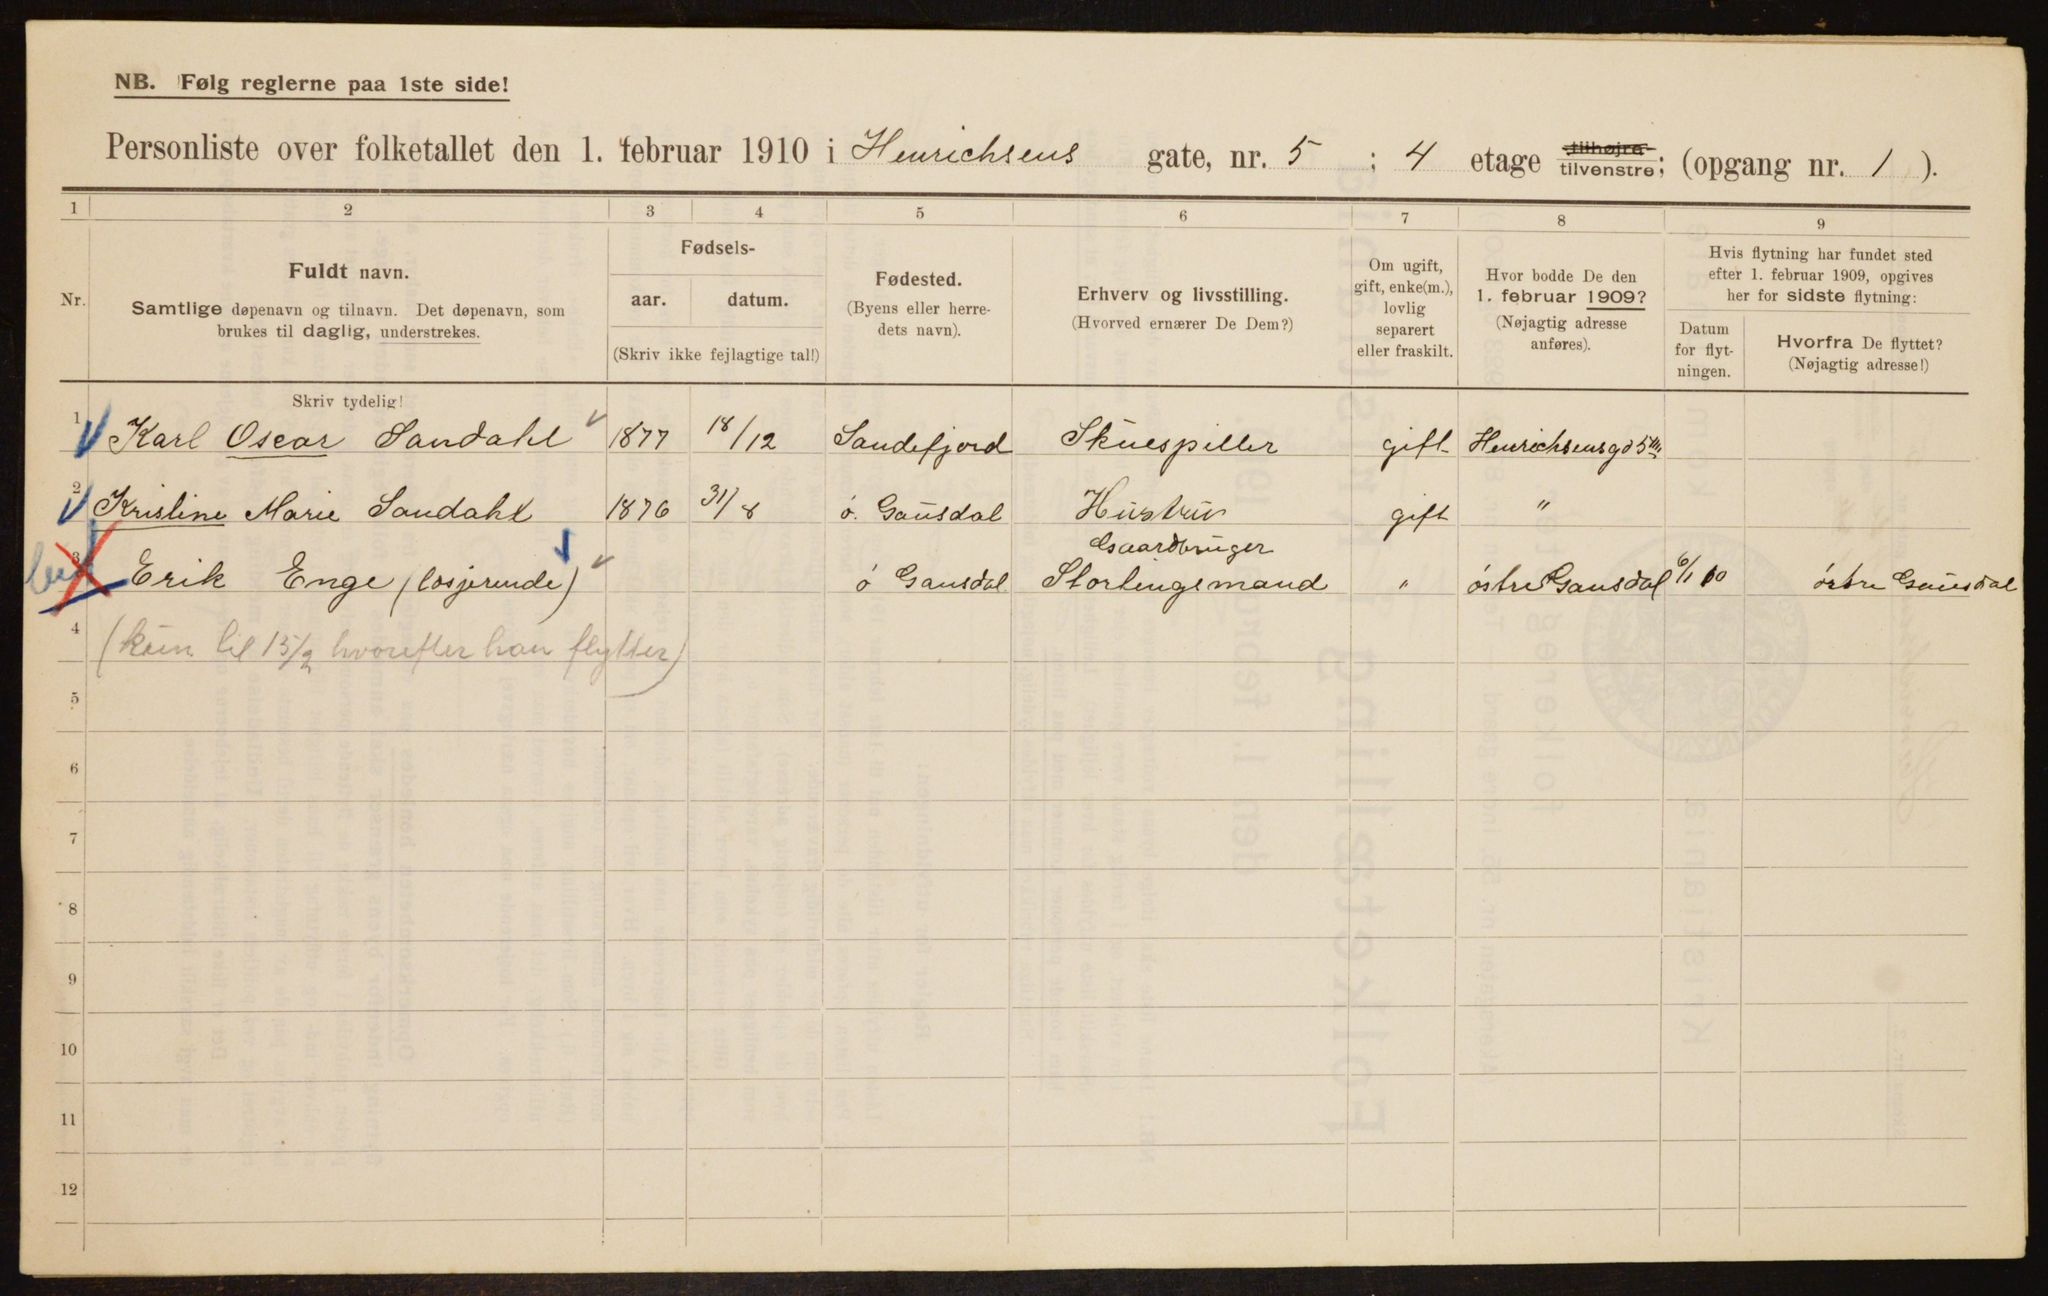 NB. Følg reglerne paa 1ste side!
Personliste over folketallet den 1. februar 1910 i Henrichsens gate, nr. 5 ; 4 etage tilhøjre tilvenstre; (opgang nr. 1 ).
1 2 3 4 5 6 7 8 9
Nr.
Fuldt navn.
Samtlige døpenavn og tilnavn. Det døpenavn, som
brukes til daglig, understrekes.
Fødsels-
aar. datum.
(Skriv ikke fejlagtige tal!)
Fødested.
(Byens eller herre-
dets navn).
Erhverv og livsstilling.
(Hvorved ernærer De Dem?)
Om ugift,
gift, enke(m.),
lovlig
separert
eller fraskilt.
Hvor bodde De den
1. februar 1909?
(Nøjagtig adresse
anføres).
Hvis flytning har fundet sted
efter 1. februar 1909, opgives
her for sidste flytning:
Datum
for flyt-
ningen.
Hvorfra De flyttet?
(Nøjagtig adresse!)
Skriv tydelig!
1 Karl Oscar Sandahl 1877 18/12 Sandefjord Skuespiller gift Henrichsensgd 5
2 Kristine Marie Sandahl 1876 31/8 ö. Gausdal Hustru gift "
Gaardbruger
3 Erik Enge (losjerende) ö Gausdal Stortingsmand " östre Gausdal 6/1 10 östre Gausdal
4 (kun til 15/2 hvorefter han flytter)
5
6
7
8
9
10
11
12